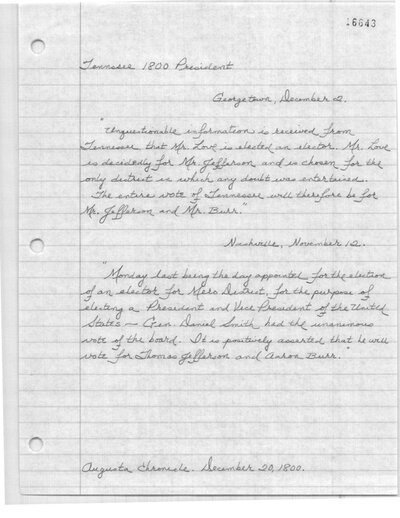 16643
Tennssee 1800 President
Georgetown, December 2.
"Unquestionable information is received from
Tennessee, that Mr. Love is elected an elector. Mr. Love
is decidedly for Mr. Jefferson and is chosen for the
only district in which any doubt was entertained.
The entire vote of Tennessee will therefore be for
Mr. Jefferson and Mr. Burr."
Nashville, November 12.
"Monday last being the day appointed for the election
of an elector for Mero District, for the purpose of
electing a President and Vice President of the United
States— Gen. Daniel Smith had the unanimous
vote of the board. It is positively asserted that he will
vote for Thomas Jefferson and Aaron Burr."
Augusta Chronicle. December 20, 1800.